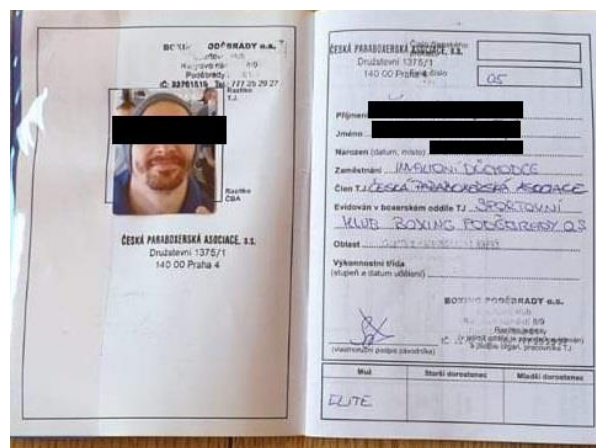 BODĚBRADY o.s.
Poděbrady
IČ: 22761519 Tel.: 777 25 29 27
Razítko
T.J.
Razítko
ČBA
ČESKÁ PARABOXERSKÁ ASOCIACE, z.s.
Družstevní 1375/1
140 00 Praha 4
ČESKÁ PARABOXERSKÁ
Družstevní 1375/1
140 00 Praha 4
05
Příjmení
Jméno
Narozen (datum, místo)
Zaměstnání INVALIDNÍ DŮCHODCE
Člen T.J. ČESKÁ PARABOXERSKÁ ASOCIACE
Evidován v boxerském oddíle TJ SPORTOVNÍ
KLUB BOXING PODĚBRADY O.S
Oblast
Výkonnostní třída
(stupeň a datum udělení)
BOXING PODĚBRADY o.s.
(vlastnoruční podpis závodníka)
Muž Starší dorostenec Mladší dorostenec
ELITE